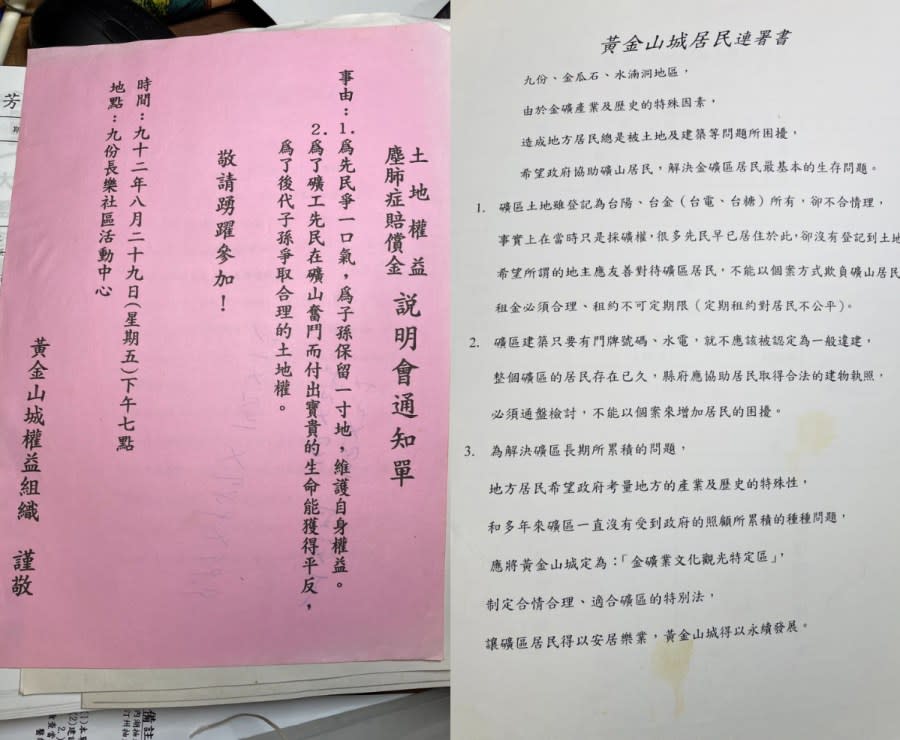 土地權益
塵肺症賠償金
說明會通知單
事由：1．爲先民爭一口氣，爲子孫保留一寸地，維護自身權益。
2．爲了礦工先民在礦山奮鬥而付出寶貴的生命能獲得平反，
爲了後代子孫爭取合理的土地權。
敬請踴躍參加！
時間：九十二年八月二十九日(星期五)下午七點
地點：九份長樂社區活動中心
黃金山城權益組織 謹敬
芳
備註
黃金山城居民連署書
九份、金瓜石、水湳洞地區，
由於金礦產業及歷史的特殊因素，
造成地方居民總是被土地及建築等問題所困擾，
希望政府協助礦山居民，解決金礦區居民最基本的生存問題。
1. 礦區土地雖登記為台陽、台金（台電、台糖）所有，卻不合情理，
事實上在當時只是採礦權，很多先民早已居住於此，卻沒有登記到土地
希望所謂的地主應友善對待礦區居民，不能以個案方式欺負礦山居民
租金必須合理、租約不可定期限（定期租約對居民不公平）。
2. 礦區建築只要有門牌號碼、水電，就不應該被認定為一般違建，
整個礦區的居民存在已久，縣府應協助居民取得合法的建物執照，
必須通盤檢討，不能以個案來增加居民的困擾。
3. 為解決礦區長期所累積的問題，
地方居民希望政府考量地方的產業及歷史的特殊性，
和多年來礦區一直沒有受到政府的照顧所累積的種種問題，
應將黃金山城定為：「金礦業文化觀光特定區」，
制定合情合理、適合礦區的特別法，
讓礦區居民得以安居樂業，黃金山城得以永續發展。